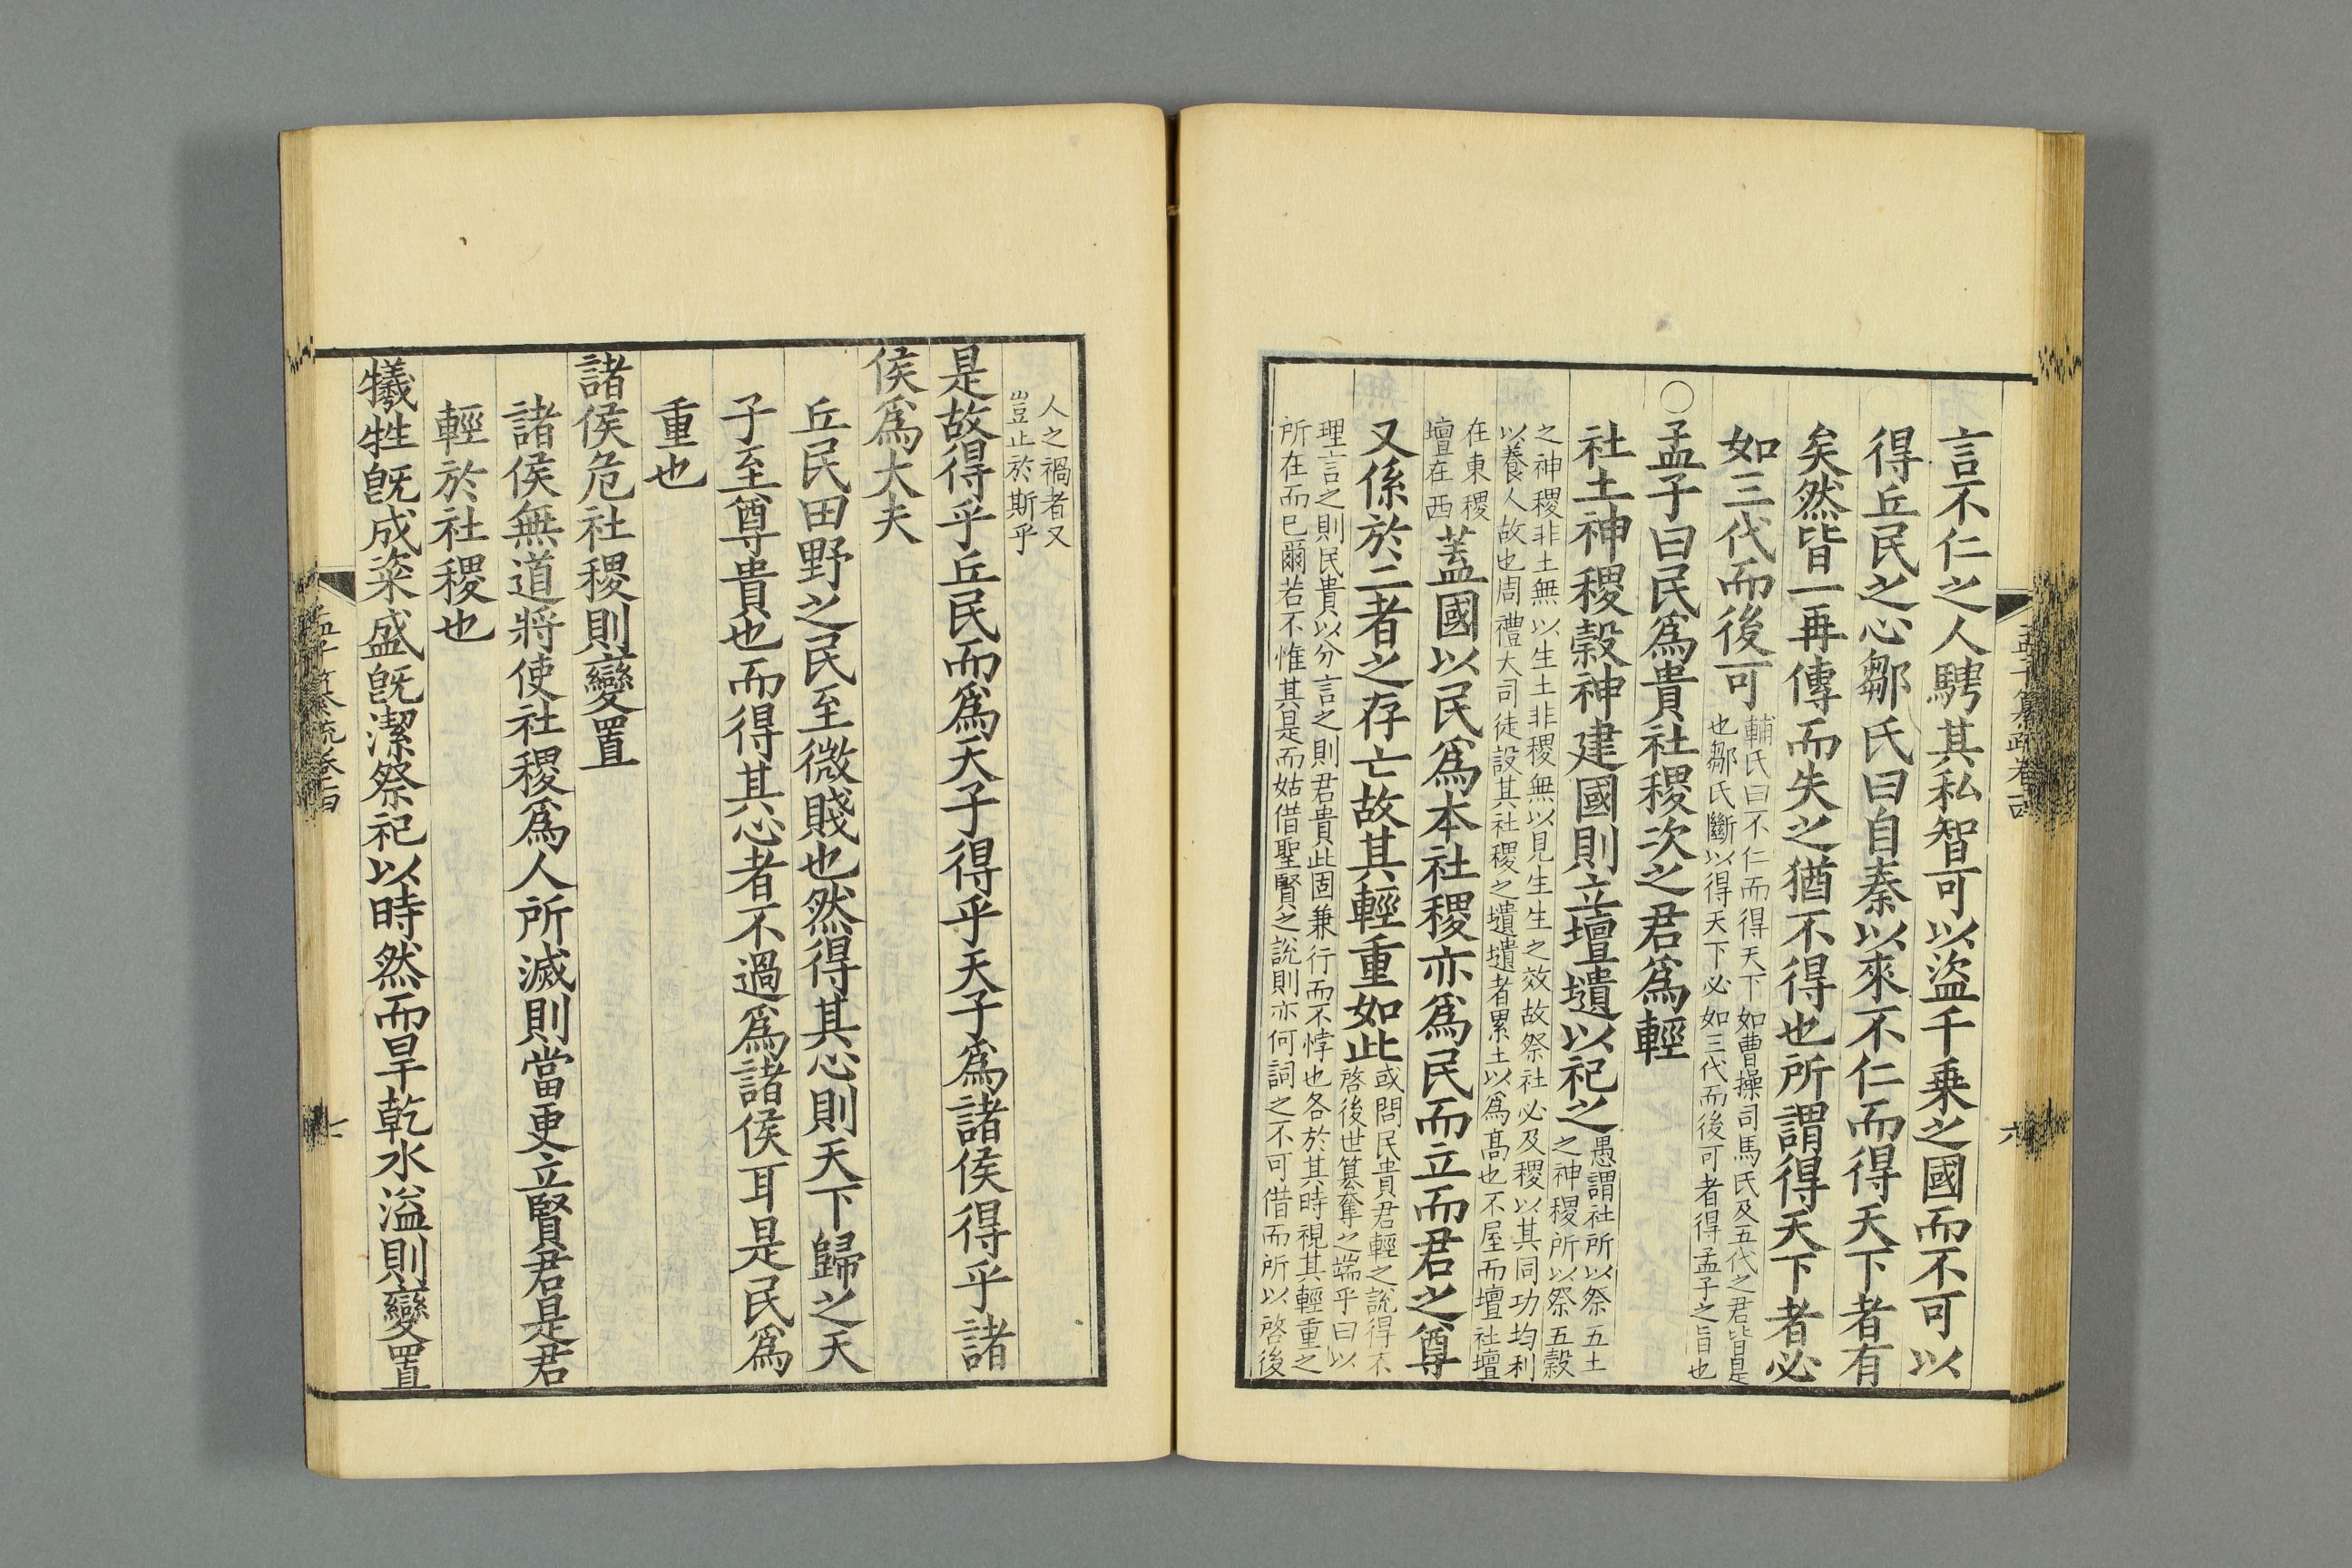 孟子纂疏卷十四
六
言不仁之人騁其私智可以盜千乗之國而不可以
得丘民之心鄒氏曰自秦以來不仁而得天下者有
矣然皆一再傳而失之猶不得也所謂得天下者必
如三代而後可
輔氏曰不仁而得天下如曹操司馬氏及五代之君皆是
也鄒氏斷以得天下必如三代而後可者得孟子之旨也
〇孟子曰民爲貴社稷次之君爲輕
社土神稷穀神建國則立壇壝以祀之
愚謂社所以祭五土
之神稷所以祭五穀
之神稷非土無以生土非稷無以見生生之效故祭社必及稷以其同功均利
以養人故也周禮大司徒設其社稷之壝壝者累土以爲髙也不屋而壇社壇
在東稷
壇在西
蓋國以民爲本社稷亦爲民而立而君之尊
又係於二者之存亡故其輕重如此
或問民貴君輕之說得不
啓後世簒奪之端乎曰以
理言之則民貴以分言之則君貴此固兼行而不悖也各於其時視其輕重之
所在而已爾若不惟其是而姑借聖賢之說則亦何詞之不可借而所以啓後
人之禍者又
豈止於斯乎
是故得乎丘民而爲天子得乎天子爲諸侯得乎諸
侯爲大夫
丘民田野之民至微賤也然得其心則天下歸之天
子至尊貴也而得其心者不過爲諸侯耳是民爲
重也
諸侯危社稷則變置
諸侯無道將使社稷爲人所滅則當更立賢君是君
輕於社稷也
犧牲旣成粢盛旣潔祭祀以時然而旱乾水溢則變置
孟子纂疏卷十四
七